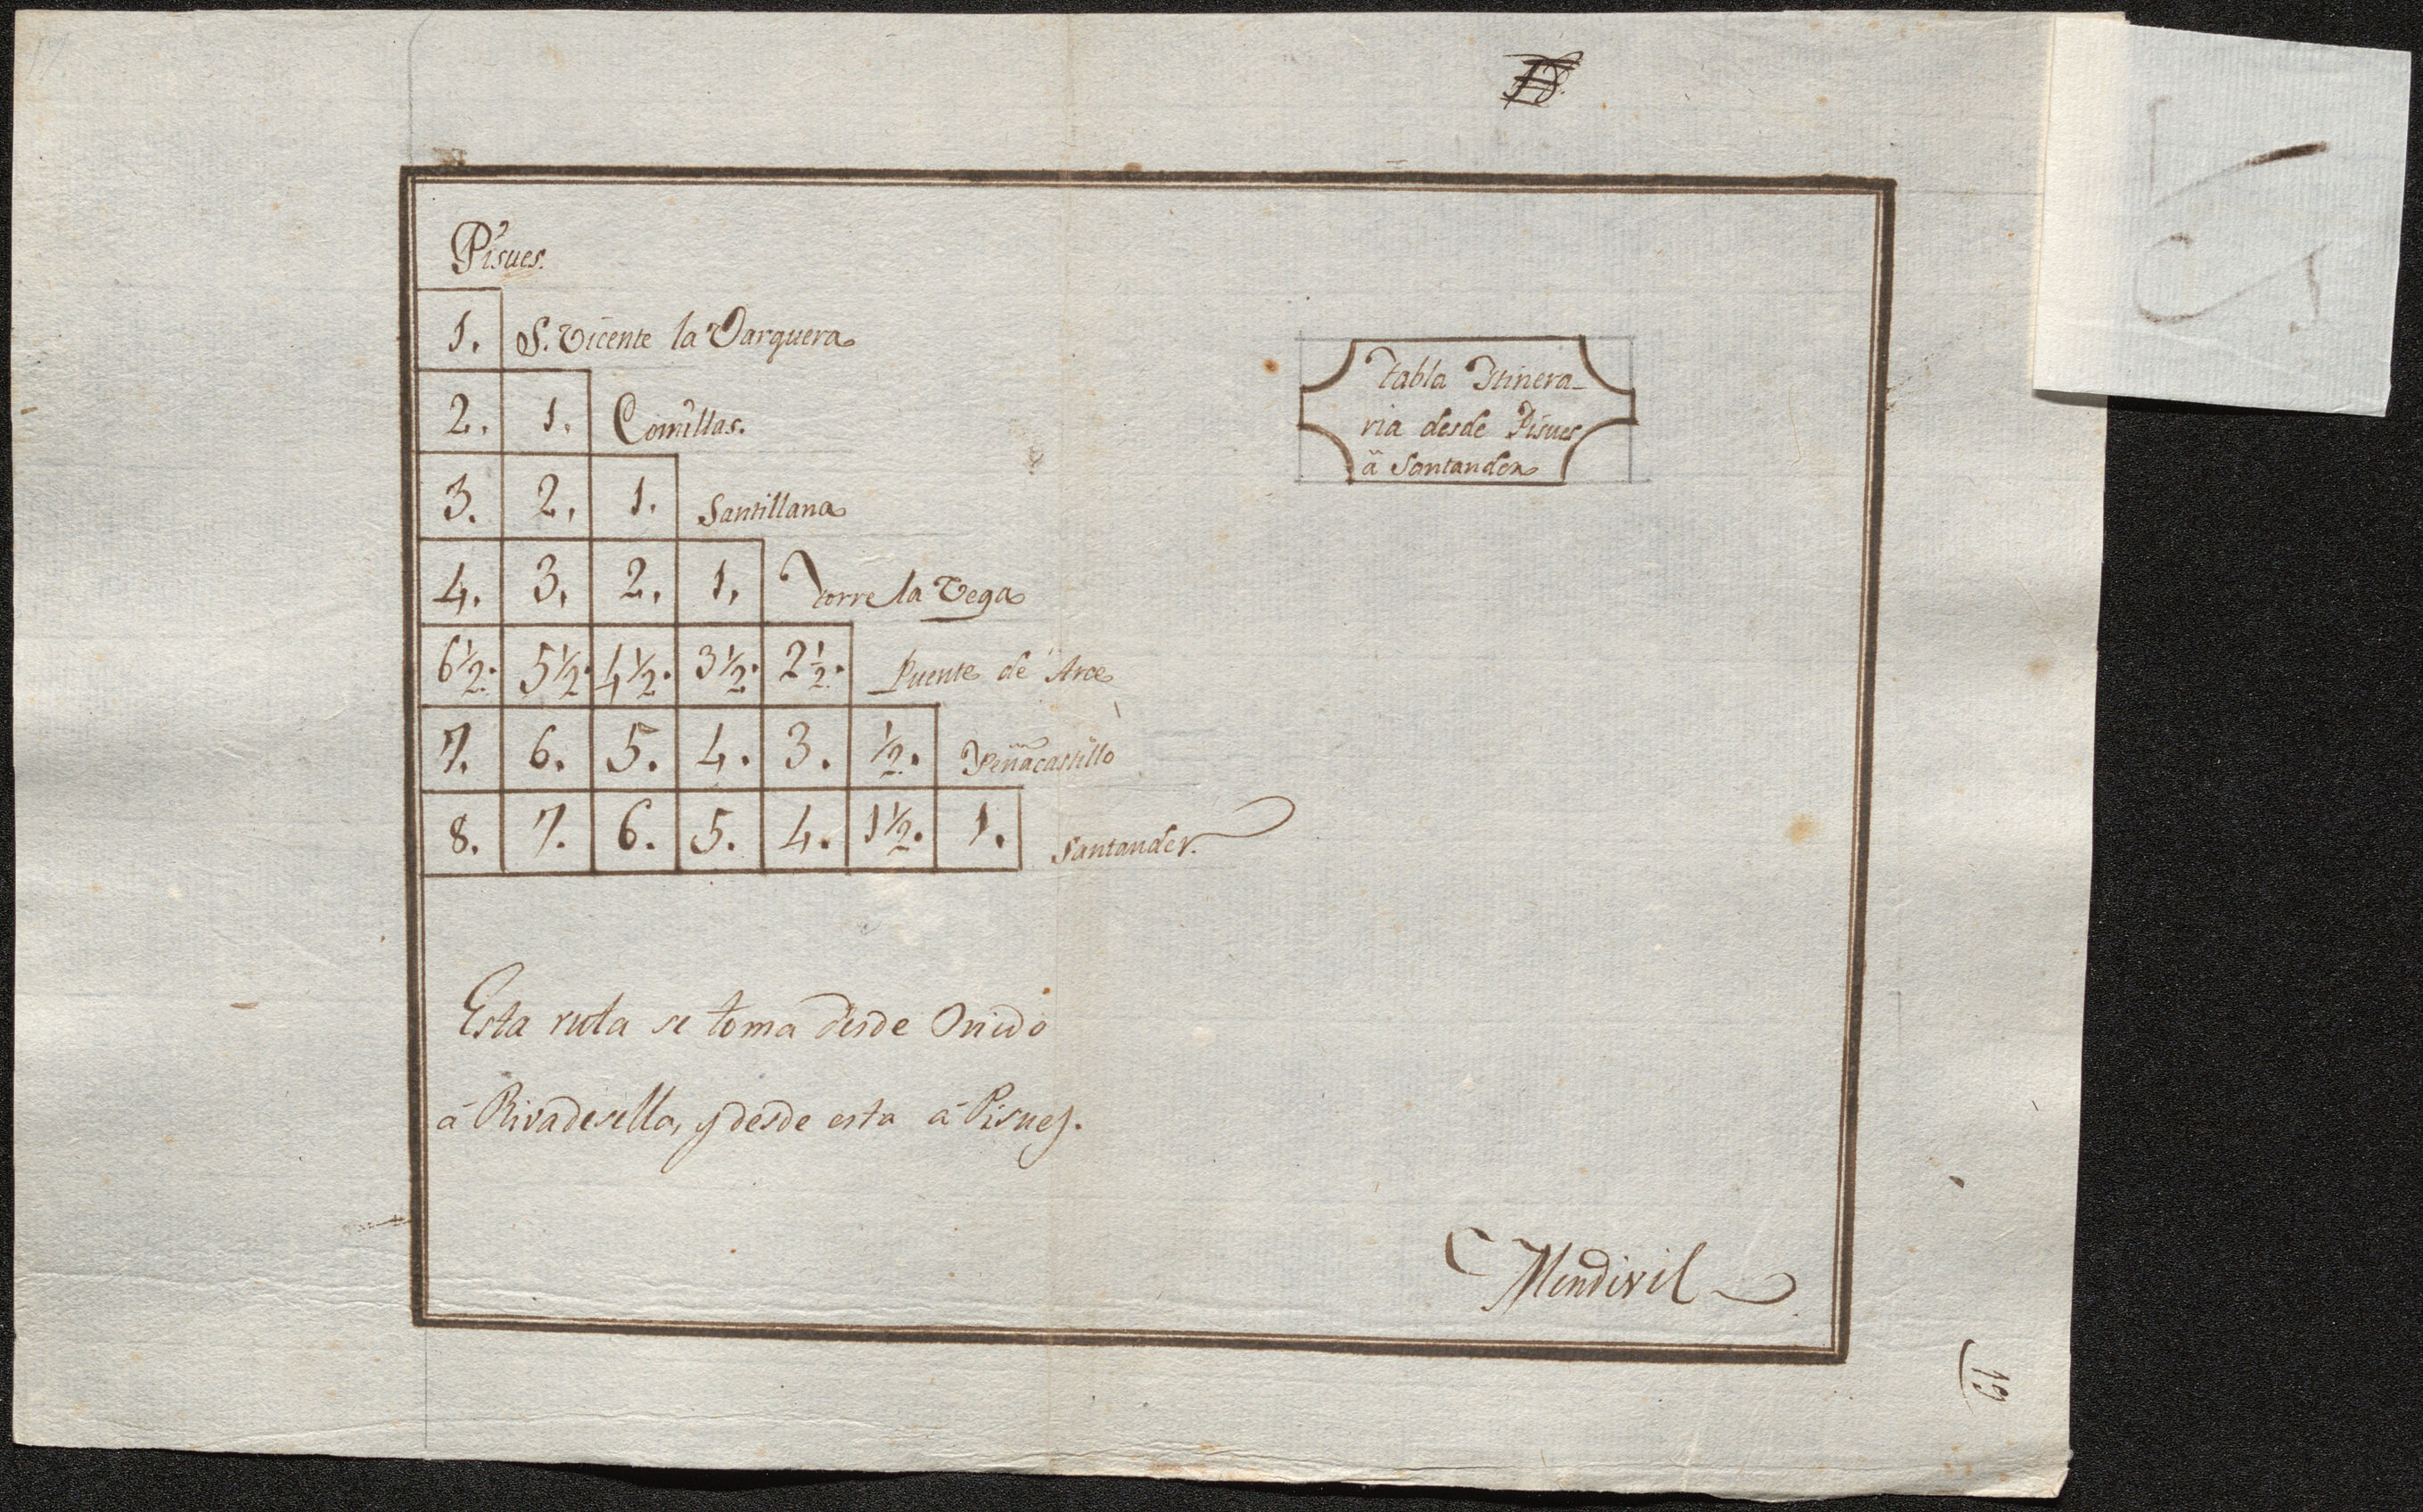 Pisues.
1. S. Vicente la Varquera
2. 1. Comillas.
3. 2. 1. Santillana
4. 3. 2. 1. Torre la Vega
6½. 5½. 4½. 3½. 2½. Puente de Arce
7. 6. 5. 4. 3. ½. Peñacastillo
8. 7. 6. 5. 4. 1½. 1. Santander.
Tabla Itinera-
ria desde Pisues
ä Santander
Esta ruta se toma desde Oviedo
á Rivadesella, y desde esta á Pisues.
Mendivil
19